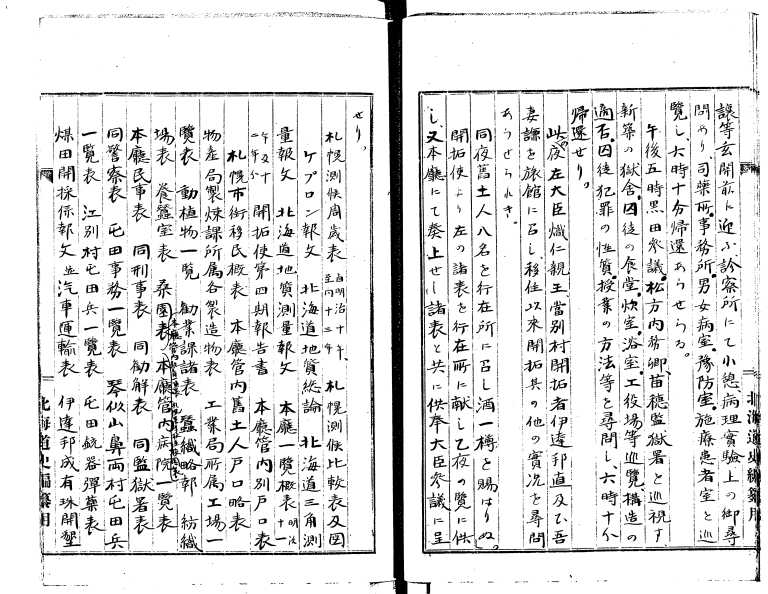 譲等玄関前に迎ふ診察所にて小憩病理實驗上の御尋
問あり、司薬所、事務所、男女病室、豫防室、施療患者室と巡
覽し、六時十分帰還あらせらる。
午後五時黒田参議、松方内務卿、苗穂監獄署と巡視す
新築の獄舎、囚徒の食堂、炊室、浴室、工役場等巡覽構造の
適否、囚徒犯罪の性質、授業の方法等と尋問し、六時十分
帰還せり。
此夜左大臣熾仁親王當別村開拓者伊達邦直及ひ吾
妻謙を旅館に召し、移住以来開拓其の他の實况を尋問
あらせられき。
同夜舊土人八名を行在所に召し酒一樽と賜はりぬ。
開拓使より左の諸表を行在所に献し乙夜の覽に供
し又本廳にて奏上せし諸表と共に供奉大臣参議に呈
せり。
札幌測候周歳表 自明治十年至同十三年 札幌測候比較表及図
ケプロン報文 北海道地質総論 北海道三角測
量報文 北海道地質測量報文 本廳一覧概表 明治十一
二年分 開拓使第四期報告書 本廳管内別戸口表
札幌市街移民概表 本廳管内舊土人戸口略表
物産局製煉課所属各製造物表 工業局所属工場一
覽表 動植物一覧 勧業課諸表 蠶織略部 紡織
場表 養蠶室表 桑園表 本廳管内病院一覧表
本廳民事表 同刑事表 同勧解表 同監獄署表
同警察表 屯田事務一覧表 琴似山鼻両村屯田兵
一覽表 江別村屯田兵一覧表 屯田銃器弾薬表
煤田開採係報文並汽車運輸表 伊達邦成有珠開墾
北海道史編纂用
北海道史編纂用